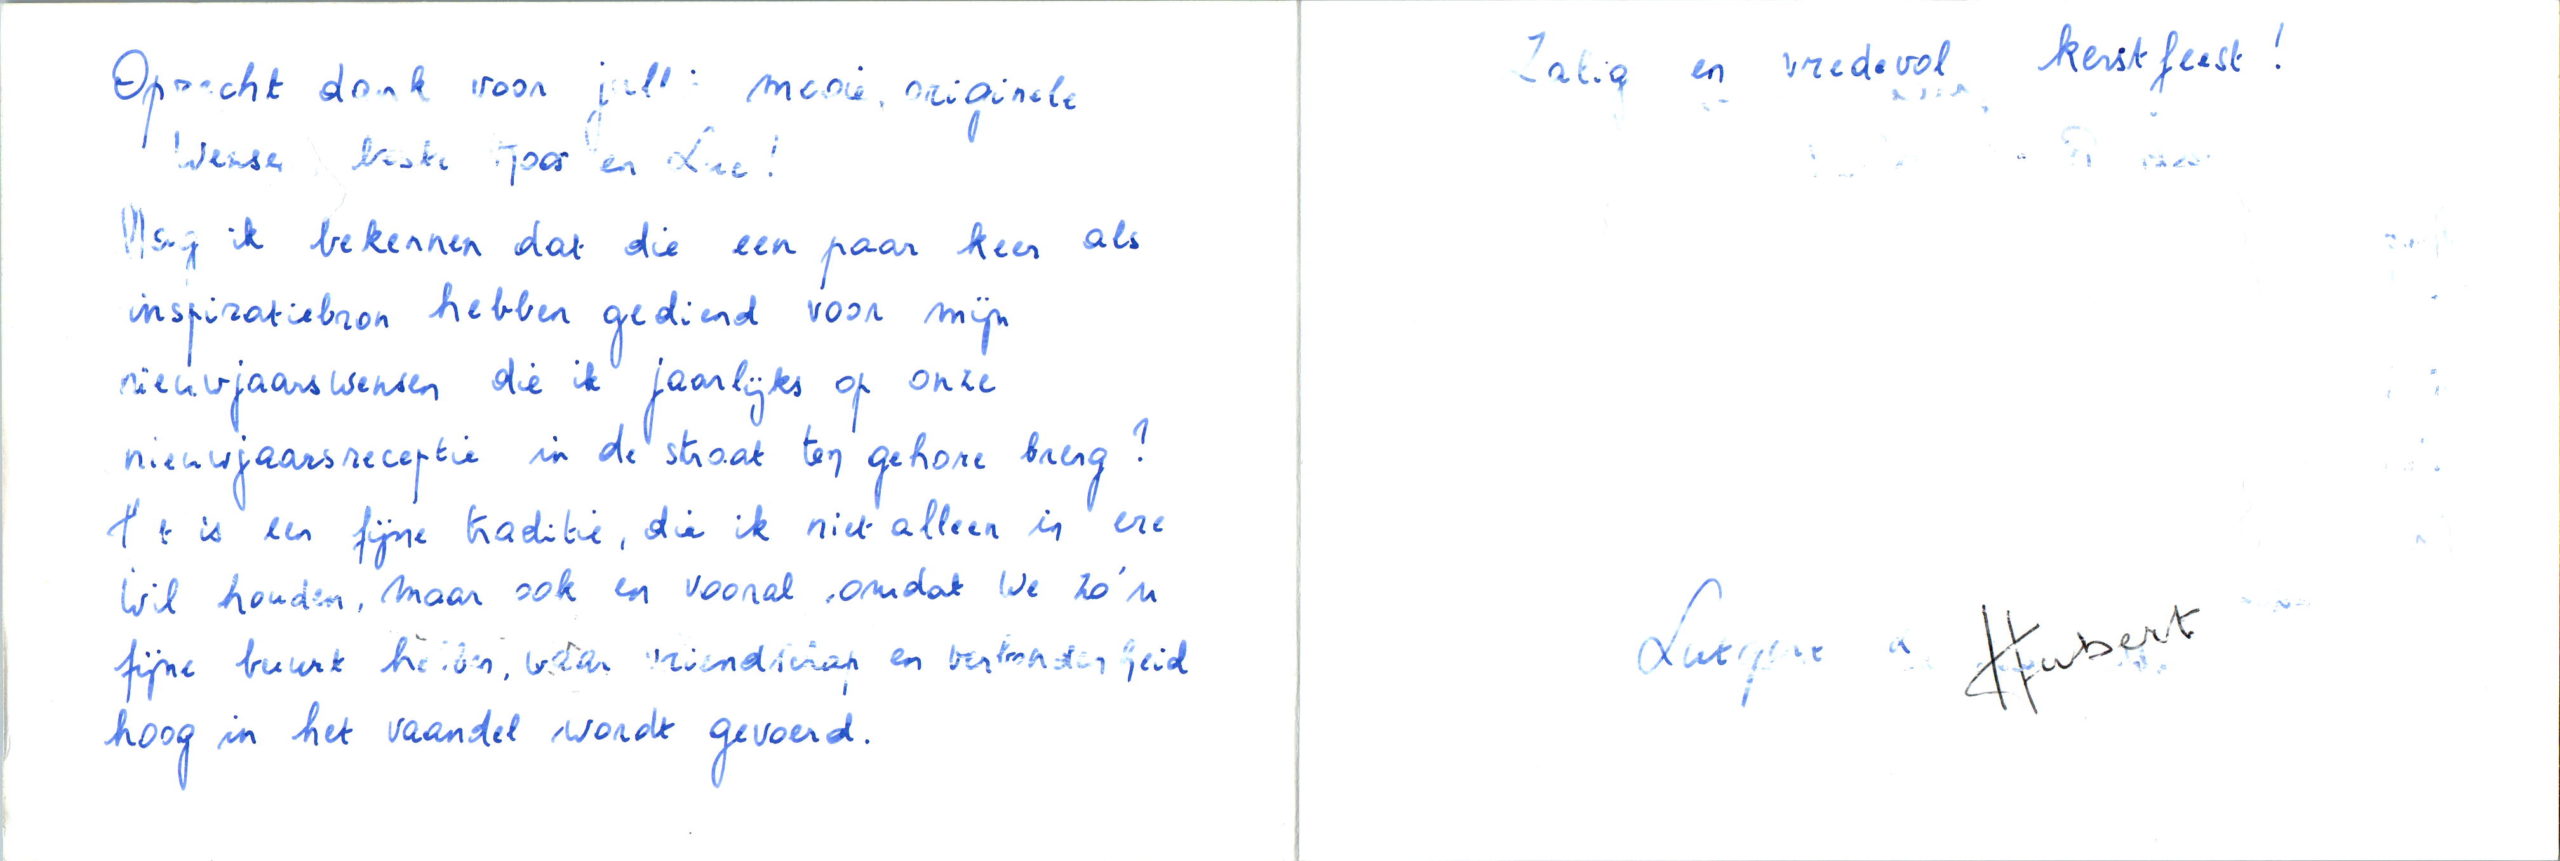 Oprecht dank voor jullie mooie, originele
wensen beste Joos en Luc!
Mag ik bekennen dat die een paar keer als
inspiratiebron hebben gediend voor mijn
nieuwjaarswensen die ik jaarlijks op onze
nieuwjaarsreceptie in de straat ten gehore breng?
Het is een fijne traditie, die ik niet alleen in ere
wil houden, maar ook en vooral omdat we zo'n
fijne buurt hebben, waar vriendschap en verbondenheid
hoog in het vaandel wordt gevoerd.
Zalig en vredevol kerstfeest!
Hubert